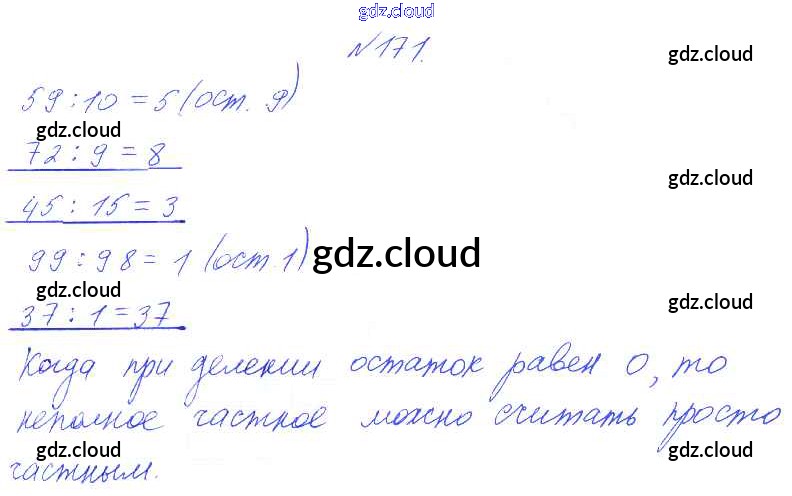 gdz.cloud
№171.
gdz.cloud
59:10=5(ост. 9)
gdz.cloud
72:9=8
gdz.cloud
45:15=3
99:98=1(ост.1)
gdz.cloud
gdz.cloud
gdz.cloud
37:1=37
Когда при делении остаток равен 0, то
неполное частное можно считать просто
gdz.cloud
gdz.cloud
частным.